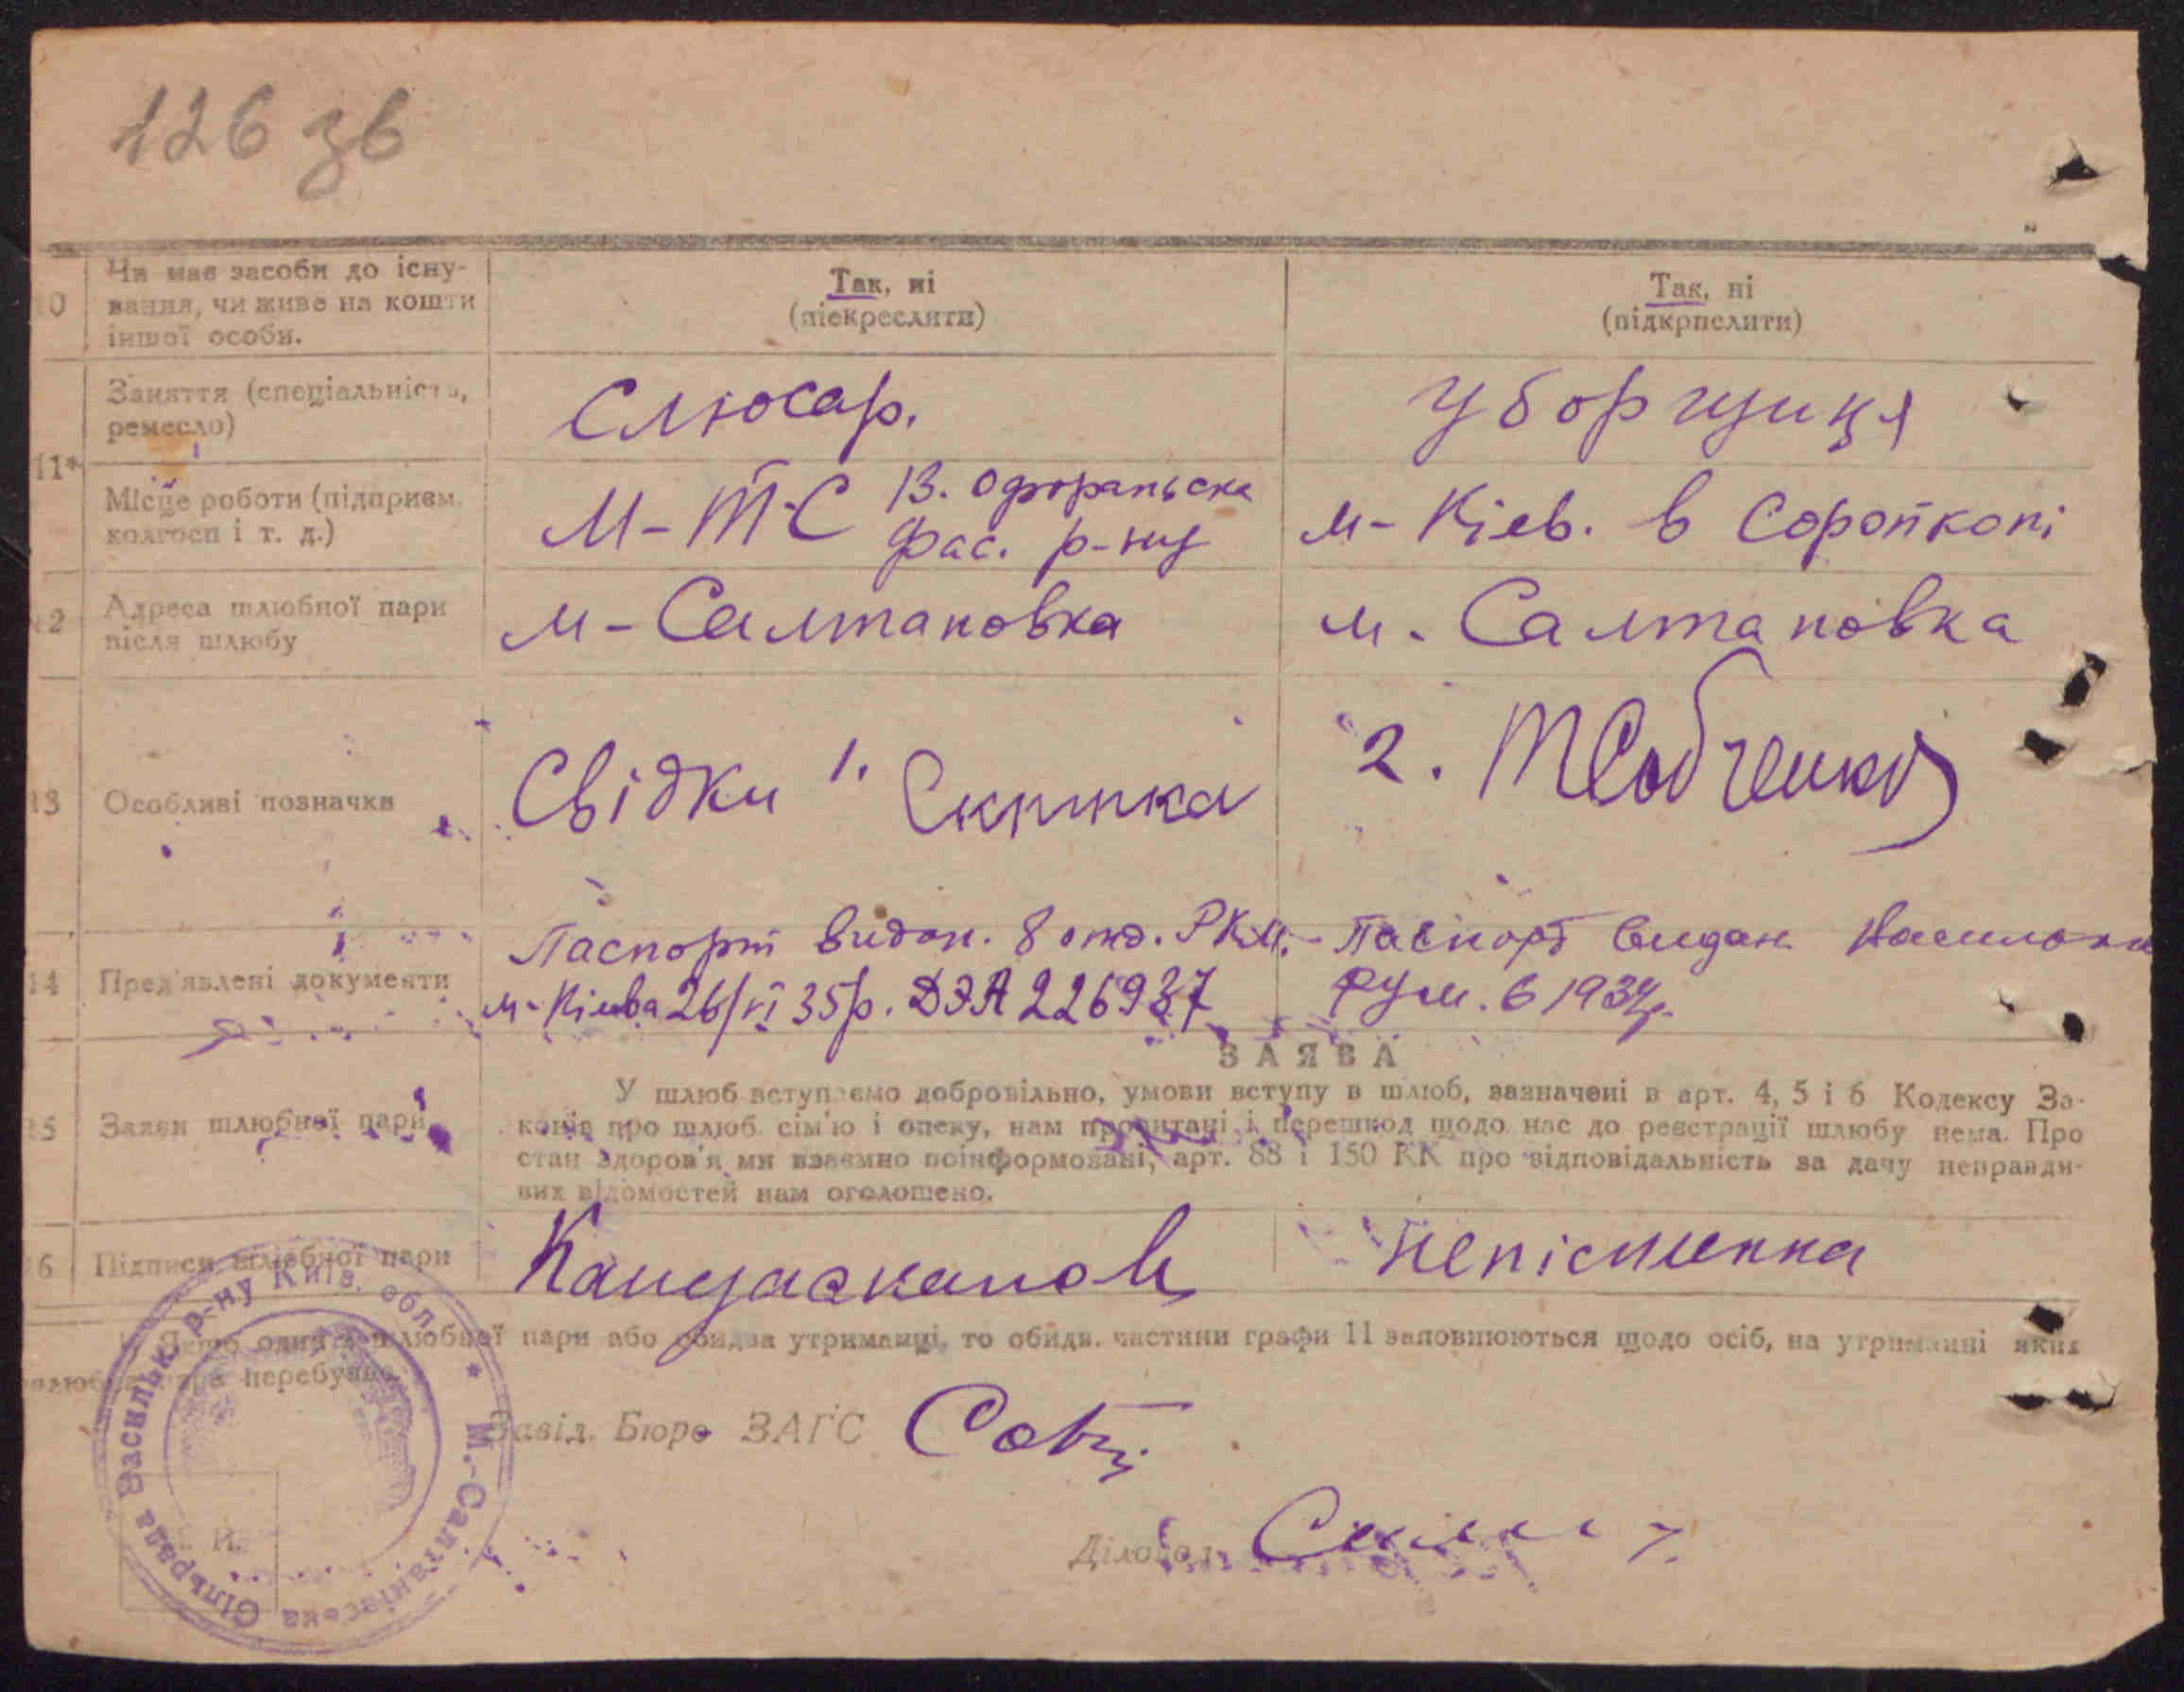 126 зв
10 Чи має засоби до існу-
вання, чи живе на кошти
іншої особи.
Так, ні
(піекреслити)
Так, ні
(підкрпслити)
11*
Заняття (спеціальність,
ремесло)
Слюсар.
Уборщиця
Місце роботи (підприєм.
колгосп і т. д.)
М-Т-С В.
Фас. р-ну
м- Кіев. в
12 Адреса шлюбної пари
після шлюбу
м- Салтановка
м. Салтановка
13 Особливі позначки
Свідки 1. Скрипка
2.
14 Пред'явлені документи
Паспорт видан. 8 отд. РКМ.
м- Кіива 26/VI 35р. ДЭА 226937
Паспорт видан
РУМ. в 1934р.
15 Заяви шлюбної пари
ЗАЯВА
У шлюб вступаємо добровільно, умови вступу в шлюб, зазначені в арт. 4, 5 і 6 Кодексу За-
конів про шлюб сім'ю і опеку, нам прочитані і перешкод щодо нас до реєстрації шлюбу нема. Про
стан здоров'я ми взаємно поінформовані, арт. 88 і 150 КК про відповідальність за дачу неправди-
вих відомостей нам оголошено.
16 Підписи шлюбної пари
Непісменна
Якщо один з шлюбної пари або обидва утриманці, то обидв. частини графи 11 заповнюються щодо осіб, на утриманні яких
шлюбна пара перебуває.
Завід. Бюро ЗАГС
Діловод
М.-Салтанівська Сільрада Васильк. р-ну Київ. обл.